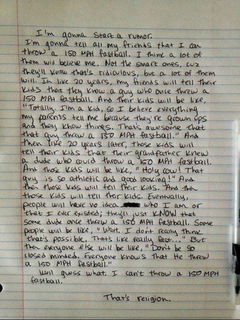 I'm gonna start a rumor.
I'm gonna tell all my friends that I can
throw a 150 MPH fastball. I think a lot of
them will believe me. Not the smart ones, cuz
they'll know that's ridiculous, but a lot of them
will. In like 20 years, my friends will tell their
kids that they knew a guy who once threw a
150 MPH fastball. And their kids will be like,
"Totally. I'm a kid, so I believe everything
my parents tell me because they're grown ups
and they know things. That's awesome that
that guy threw a 150 MPH fastball." And
then like 20 years later those kids will
tell their kids that their grandfather knew
a dude who could throw a 150 MPH fastball.
And those kids will be like, "Holy cow! That
guy is so athletic and good looking!" And
then those kids will tell their kids. And then
those kids will tell their kids. Eventually,
people will have no idea who I am or
that I ever existed, they'll just KNOW that
some dude once threw a 150 MPH fastball. Some
people will be like, "Wait. I don't really think
that's possible. That's like really fast..." But
then everyone else will be like, "Don't be so
closed minded. Everyone knows that He threw
a 150 MPH fastball."
Well guess what. I can't throw a 150 MPH
fastball.
That's religion.